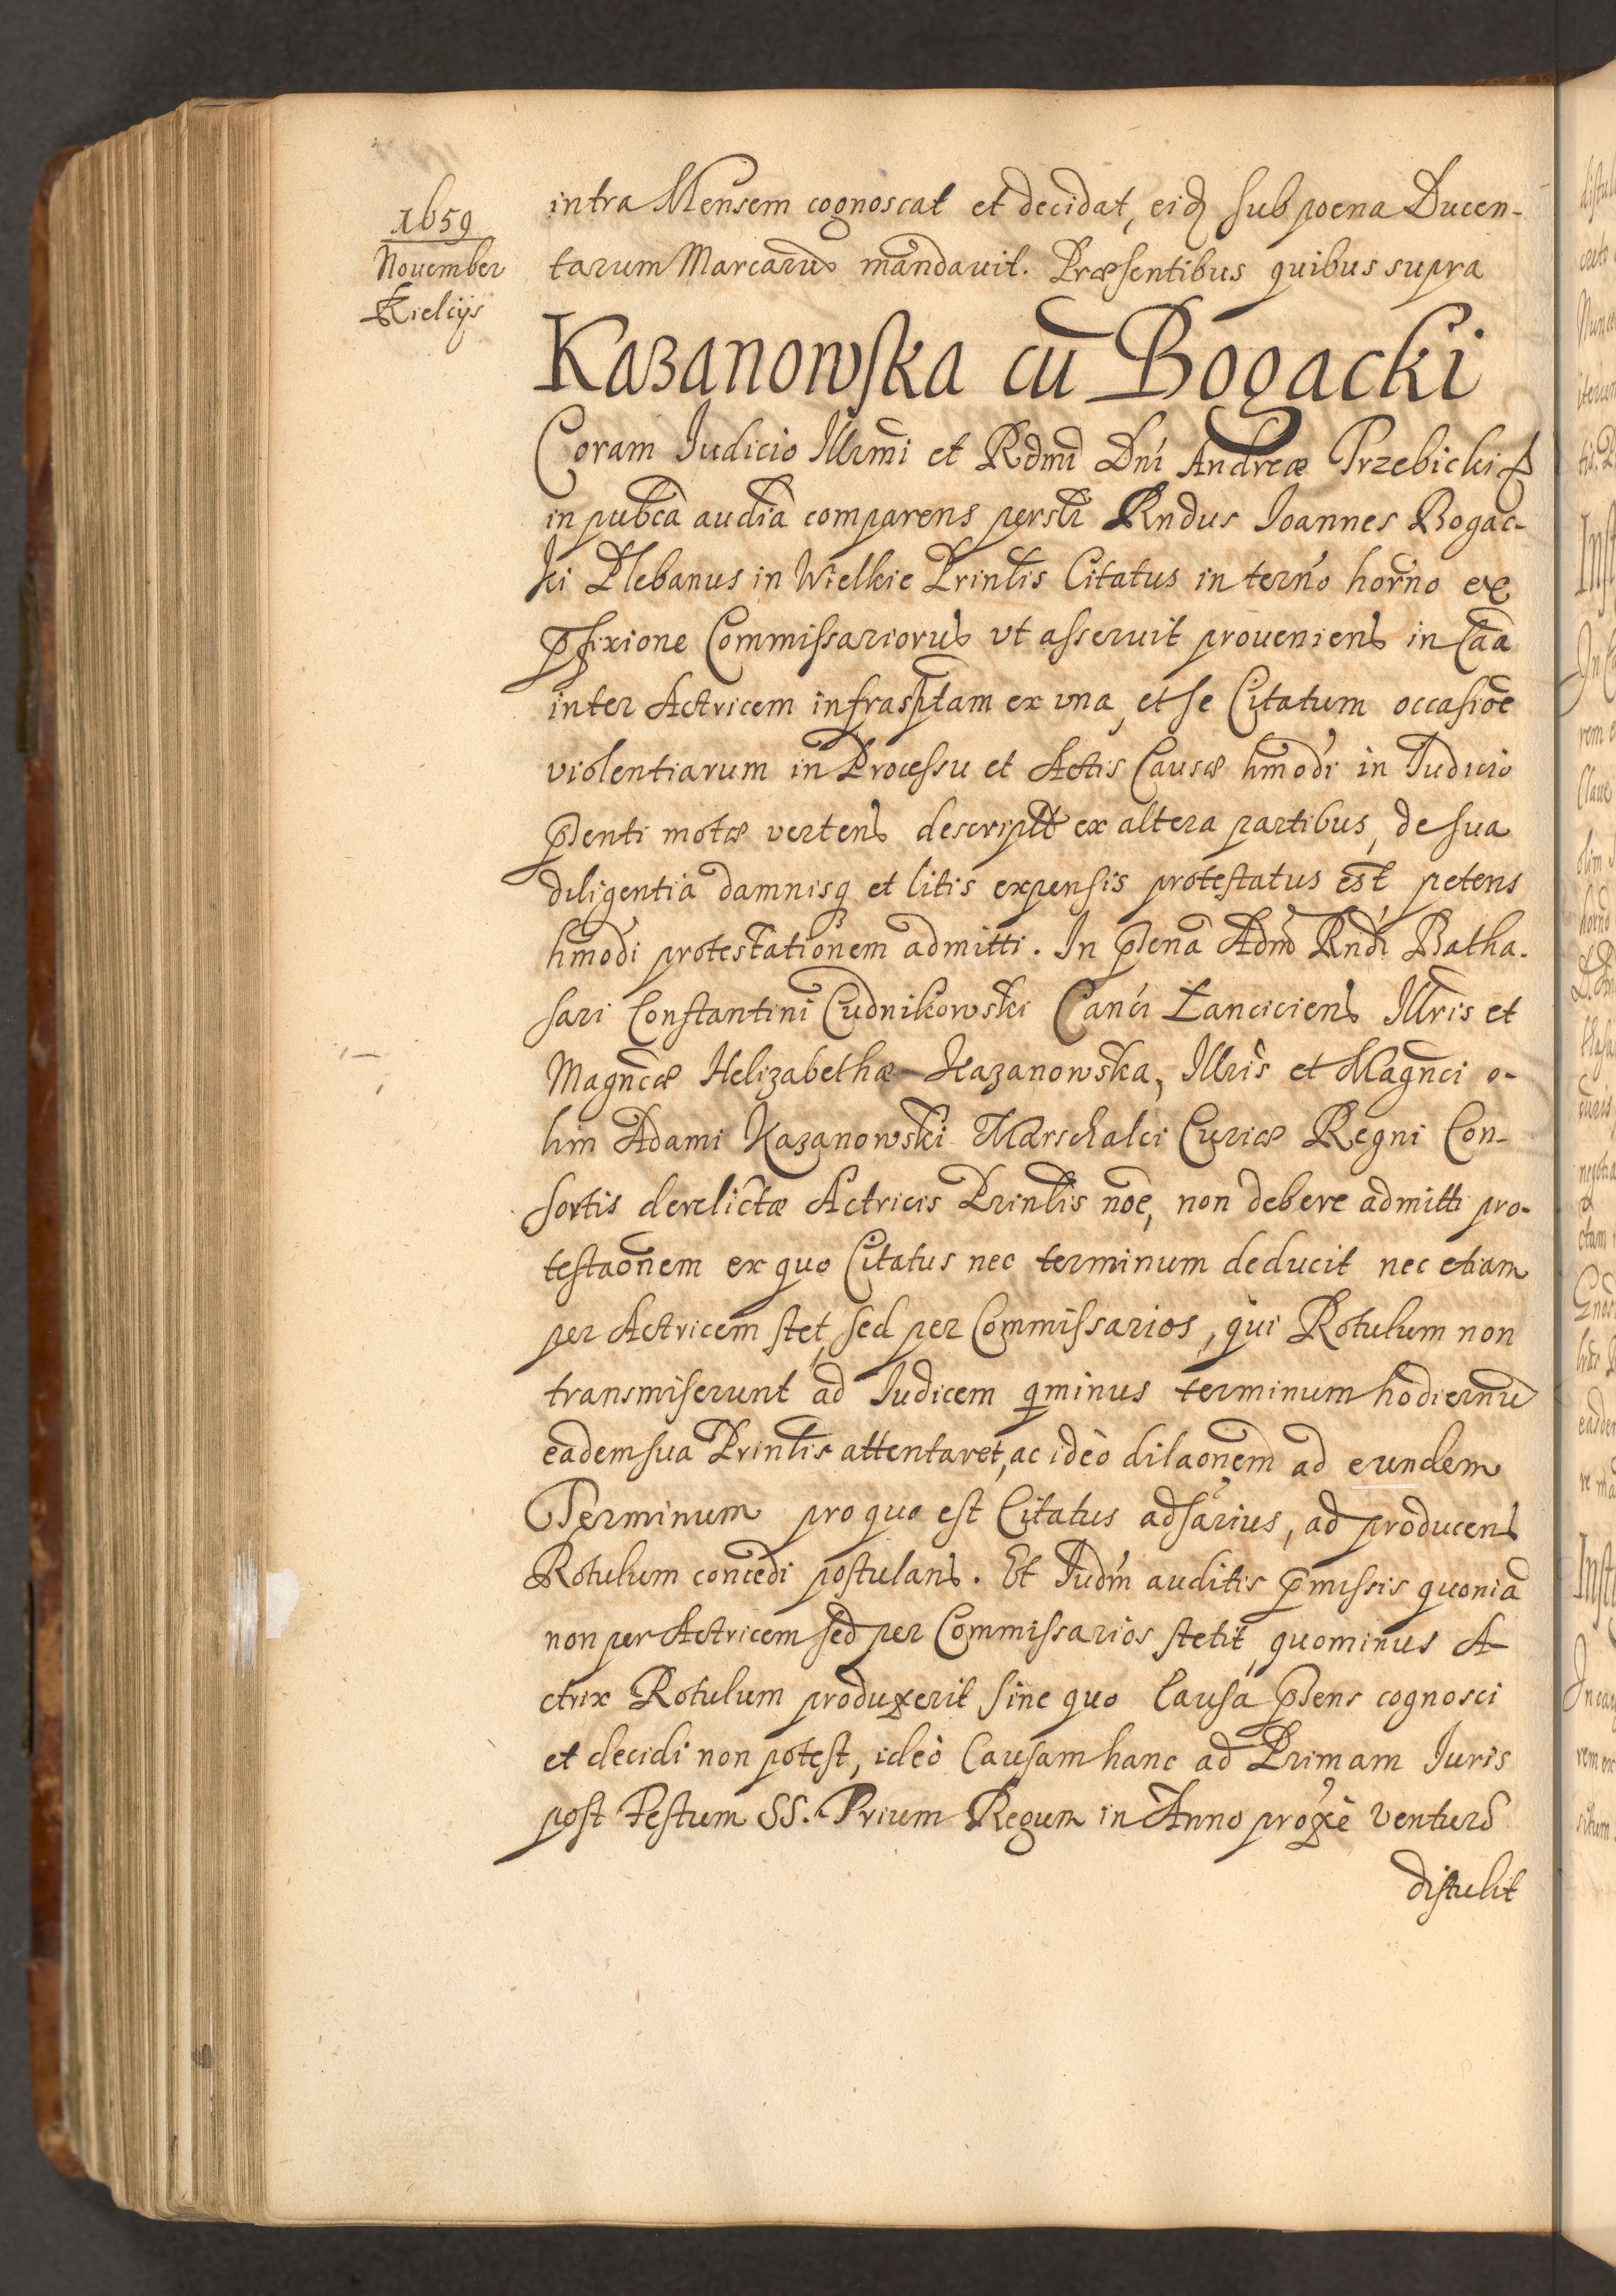 1659
Nouember
Kielcijs
intra Mensem cognoscat et decidat, eidē sub poena Ducen-
tarum Marcarũ mandauit. Præsentibus quibus supra
Kazanowska cũ Bogacki
Coram Iudicio Illrmi et Rdmi Dni Andreæ Trzebicki &
in pubca audia comparens persłi Rndus Ioannes Bogac-
ki Plebanus in Wielkie Prinłis Citatus in terno horno ex
p̄fixione Commissariorũ vt asseruit proueniens in Caa
inter Actricem infrasptam ex vna, et se Citatum occasiõe
violentiarum in Processu et Actis Causæ hmodi in Iudicio
p̄senti motæ vertens descriptt ex altera partibus, de sua
diligentia damnisq̃ et litis expensis protestatus est, petens
hmodi protestationem admitti. In p̄sena Adm Rndi Batha-
sari Constantini Cudnikowski Canci Łanciciens Illris et
Magncæ Helizabethæ Kazanowska, Illris et Magnci o-
lim Adami Kazanowski Marschalci Curiæ Regni Con-
sortis derelictæ Actricis Prinłis noē, non debere admitti pro-
testaõnem ex quo Citatus nec terminum deducit nec etiam
per Actricem stet, sed per Commissarios, qui Rotulum non
transmiserunt ad Iudicem q̃minus terminum hodiernũ
eadem sua Prinłis attentaret, ac ideò dilaõnem ad eundem
Terminum pro quo est Citatus adsarius, ad producens
Rotulum concedi postulans. Et Iudm auditis p̄missis quoniã
non per Actricem sed per Commissarios stetit, quominus A-
ctrix Rotulum produxerit sine quo Causa p̄sens cognosci
et decidi non potest, ideò Causam hanc ad Primam Iuris
post Festum SS. Trium Regum in Anno proxè venturo
distulit